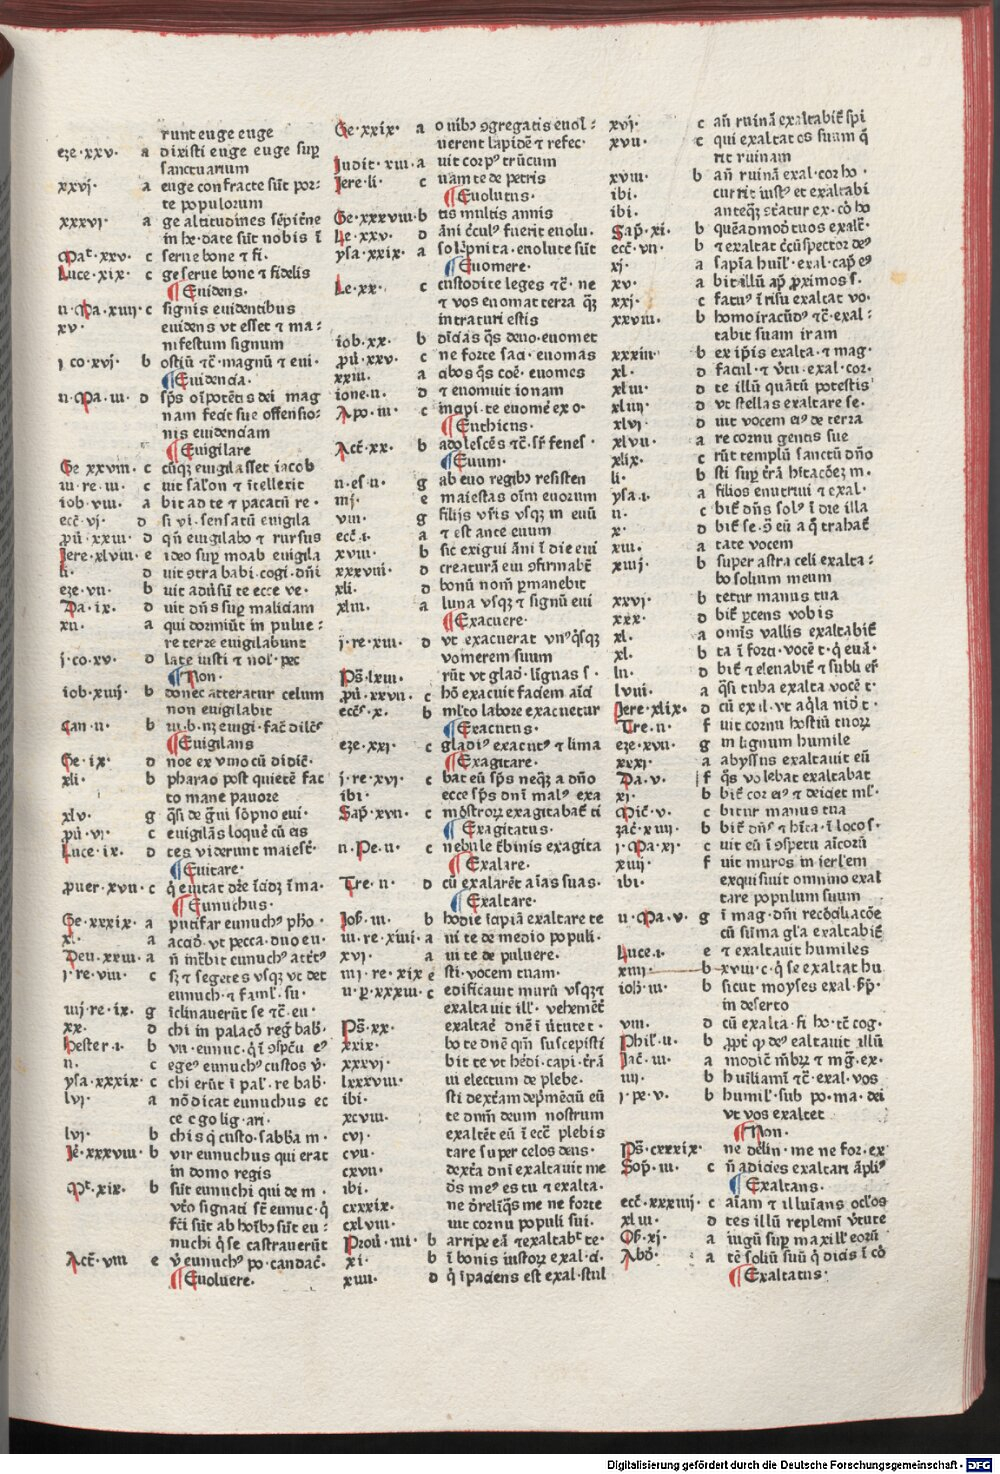 runt euge euge
eze·xxv· a dixisti euge euge suꝑ
sanctuarium
xxvj· a euge confracte sūt por⸗
te populorum
xxxvj· a ge altitudines sēpit̄ne
in he·date sūt nobis ī
Mat̄·xxv· c serue bone ⁊ fi·
Luce·xix· c ge serue bone ⁊ fidelis
¶Euidens·
ii·Ma·xiiij·c signis euidentibus
xv· euidens vt esset ⁊ ma⸗
nifestum signum
j co·xvj· b ostiū ⁊c̄·magnū ⁊ eui·
¶Euidencia·
ii·Ma·iii· d sp̄s oīpotētis dei mag
nam fecit sue ostensio⸗
nis euidenciam
¶Euigilare
Ge xxviii· c cūqꝫ euigilasset iacob
iii·re·iii· c uit salon ⁊ ītellexit
iob·viii· a bit ad te ⁊ pacatū re·
ecc̄·vj· d si vi·sensatū euigila
ꝓū·xxiii· d qn̄ euigilabo ⁊ rursus
Jere·xlviii· e ideo suꝑ moab euigila
li· d uit ꝯtra babi·cogi·dn̄i
eze·vii· b uit aduˢū te ecce ve·
Da·ix· d uit dn̄s suꝑ maliciam
xii· a qui dormiūt in pulue⸗
re terre euigilabunt
j·co·xv· d late iusti ⁊ nol̄·pec
¶Non·
iob·xiiij· b donec atteratur celum
non euigilabit
Can·ii· b
¶Euigilans
Ge·ix· d noe ex vino cū didic̄·
xli· b pharao post quietē fac
to mane pauore
xlv· g q̄si de g̈ui sōpno eui·
ꝓū·vj· c euigilās loquē cū eis
Luce·ix· d tes viderunt maiest̄·
¶Euitare·
ꝓuer·xvii· c
¶Eunuchus·
Ge·xxxix· a putifar eunuchꝰ pho·
xl· a accid̄·vt pecca·duo eu·
Deu·xxiii· a n̄ intͣbit eunuchꝰ
j·re·viii· c sꝫ ⁊ segetes vsqꝫ vt det
eunuch·⁊ faml̄·su·
iiij·re·ix· g īclinauerūt se ⁊c̄·eu·
xx· d chi in palacō reḡ bab̄·
hester·i· b vii·eunuc·q̄ ī ꝯspc̄u eꝰ
ii· c egeꝰ eunuchꝰ custos v̄·
ysa·xxxix· c chi erūt ī pal̄·re bab̄·
lvj· a nō dicat eunuchus ec
ce ego lig·ari·
lvj· b chis q̄ custo·sabb̄a m·
Je·xxxviii· b vir eunuchus qui erat
in domo regis
Mt̄·xix· b sūt eunuchi qui de m·
vt̄o signati st̄ eunuc·q̄
fc̄i sūt ab hoīb̄ꝰ sūt eu⸗
nuchi q̄ se castrauerūt
Act̄·viii e v̄ eunuchꝰ po·candac̄·
¶Euoluere·
Ge·xxix· a ouibꝰ ꝯgregatis euol⸗
uerent lapidē ⁊ refec·
Judit·xiii·a uit corpꝰ trūcum
Jere·li· c uam te de petris
¶Euolutus·
Ge·xxxviii·b tis multis annis
Le·xxv· d āni c̄culꝰ fuerit euolu·
ysa·xxix· a solēpnita·euolute sūt
¶Euomere·
Le·xx· c custodite leges ⁊c̄·ne
⁊ vos euomat terra q̄ꝫ
intraturi estis
iob·xx· b diciās q̄s deuo·euomet
ꝓū·xxv· c ne forte saci·euomas
xxiii· a cibos q̄s coē·euomes
ione·ii· d ⁊ euomuit ionam
Apo·iii· c incipi·te euomē ex o·
¶Euthicus·
Act̄·xx· b adolescēs ⁊c̄·sr̄ fenes·
¶Euum·
ii·es·ii· g ab euo regibꝰ resisten
iiij· e maiestas oīm euorum
viii· g filijs vr̄is vsqꝫ in euū
ecc̄·i· a ⁊ est ante euum
xviii· b sic exigui āni ī die eui
xxxviii· d creaturā eui ꝯfirmabit̄
xli· d bonū nom̄ ꝑmanebit
xliii· a luna vsqꝫ ⁊ signū eui
¶Exacuere·
j·re·xiii· d vt exacuerat vnꝰq̄sqꝫ
vomerem suum
Ps̄·lxiii· rūt vt glad̄·līguas s·
ꝓū·xxvii· c hō exacuit faciem aīci
ecc̄s·x· b ml̄to labore exacuetur
¶Exacutus·
eze·xxj· c gladiꝰ exacutꝰ ⁊ lima
¶Exagitare·
j·re·xvj· c bat eū sp̄s neqꝫ a dn̄o
ibi· ecce sp̄s dn̄i malꝰ exa
Sap̄·xvii· c mōstroꝝ exagitabāt̄ ti
¶Exagitatus·
ii·Pe·ii· c nebule t̄binis exagita
¶Exalare·
Tre·ii· d cū exalarēt aīas suas·
¶Exaltare·
Jos̄·iii· b hodie īcipiā exaltare te
iii·re·xiiii·a ui te de medio populi·
xvj· a ui te de puluere·
iiij·re·xix e sti·vocem tuam·
ii·p·xxxiii·c edificauit murū vsqꝫ⁊
exaltauit ill̄·vehemēt̄
Ps̄·xx· exaltae dnē ī ṽtute t·
xxix· bo te dnē qm̄ suscepisti
xxxvj· bit te vt hēdi·capi·t̄rā
lxxxviii· ui electum de plebe·
ibi· sti dextām dep̄mēciū eū
xcviii· te dnm̄ deum nostrum
cvj· exaltēt eū ī ecc̄ plebis
cvii· tare super celos deus·
cxvii· dext̄a dn̄i exaltauit me
ibi· d̄s meꝰ es tu ⁊ exalta·
cxxxix· ne d̄reliq̄s me ne forte
cxlviii· uit cornu populi sui·
Prou·iiii· b arripe eā ⁊ exaltabᵗ te·
xi· b ī bonis iustoꝝ exal·ci·
xiiii· d q̄ īpaciens est exal·stul
xvj· c an̄ ruinā exaltabit̄ spi
xvii· c qui exaltat es suam q̄
rit ruinam
xviii· b an̄ ruinā exal·cor ho·
ibi· currit iustꝰ et exaltabi
ibi· anteqꝫ ꝯt̄atur ex·cō ho
Sap̄·xi· b quēadmod̄ tuos exalt̄·
ecc̄·vii· b ⁊ exaltat c̄cūspector deꝰ
xj· a sapīa huīl̄·exal·cap̄ eꝰ
xv· a bit illū ap̄ ꝓximos s·
xxj· c fatuꝰ ī risu exaltat vo·
xxviii· b homo iracūdꝰ ⁊c̄·exal⸗
tabit suam iram
xxxiii· b ex ip̄is exalta·⁊ mag·
xl· d facul·⁊ ṽtu·exal·cor·
xliii· d te illū quātū potestis
xliiij· d vt stellas exaltare se·
xlvj d uit vocem eiꝰ de terra
xlvii· a re cornu gentis sue
xlix· c rūt templū sanctū dn̄o
li· b sti suꝑ t̄rā hītac̄oeꝫ m·
ysa·i· a filios enutriui ⁊ exal·
ii· c bit̄ dn̄s solꝰ ī die illa
x· d bit̄ se·ꝯ eū a q̄ trahat̄
xiii· a tate vocem
xiiij· b super astra celi exalta⸗
bo solium meum
xxvj· b tetur manus tua
xxx· d bit̄ ꝑcens vobis
xl· a omīs vallis exaltabit̄
xl· b ta ī forti·vocē t·q̄ euā·
lii· d bit̄ ⁊ eleuabit̄ ⁊ subli er̄
lviii· a q̄si tuba exalta vocē t·
Jere·xlix· d cū exil·vt aq̄la nid̄ t·
Tre·ii· f uit cornu hostiū tuoꝝ
eze·xvii· g m lignum humile
xxxi· a abyssus exaltauit eū
Da·v· f q̄s volebat exaltabat
xj· b bit̄ cor eiꝰ ⁊ deiciet ml̄·
Mic̄·v· c bitur manus tua
zac̄·xiiii· b bit̄ dn̄s ⁊ hīta·ī loco s·
j·Ma·xj· c uit eū ī ꝯspetu aīcorū
xiii· f uit muros in ierl̄em
ibi· exquisiuit omnino exal
tare populum suum
ii·Ma·v· g ī mag·dn̄i recōciliac̄oe
cū sūma gl̄a exaltabit̄
Luce·i· e ⁊ exaltauit humiles
xiiii· b xviii·c·q̄ se exaltat hu
ioh̄·iii· b sicut moyses exal·s̄p̄·
in deserto
viii· d cū exalta·fi ho·⁊c̄ cog·
Phil̄·ii· b ꝓpt̄ qͩ deꝰ ealtauit illū
Jac̄·iii· a modic̄ mb̄ꝝ ⁊ mg̃·ex·
iiij· b huīliamī ⁊c̄·exal·vos
j·pe·v· b humil̄·sub po·ma·dei
vt vos exaltet
¶Non·
Ps̄·cxxxix· ne dēlin·me ne for·ex
Sop̄·iii· c n̄ adicies exaltari āpliꝰ
¶Exaltans·
ecc̄·xxxiiij· c aīam ⁊ illuīans oc̄los
xliii· d tes illū replemī ṽtute
Os̄·xj· a iugū suꝑ maxill̄ eorū
Abd̄· a tē soliū suū q̄ dicis ī cō
¶Exaltatus·
Digitalisierung gefördert durch die Deutsche Forschungsgemeinschaft · DFG